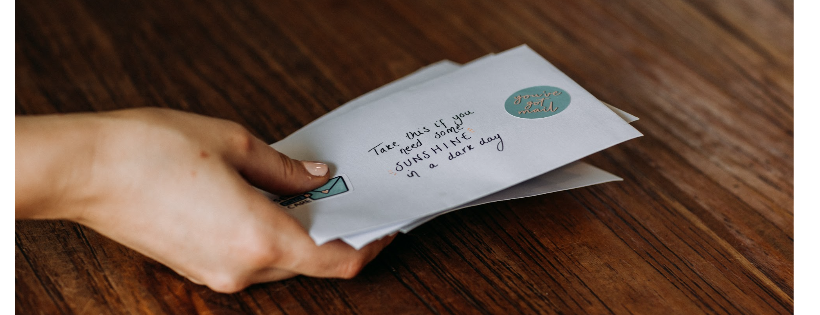 Take this if you
need some
SUNSHINE
in a dark day
you've
got
mail